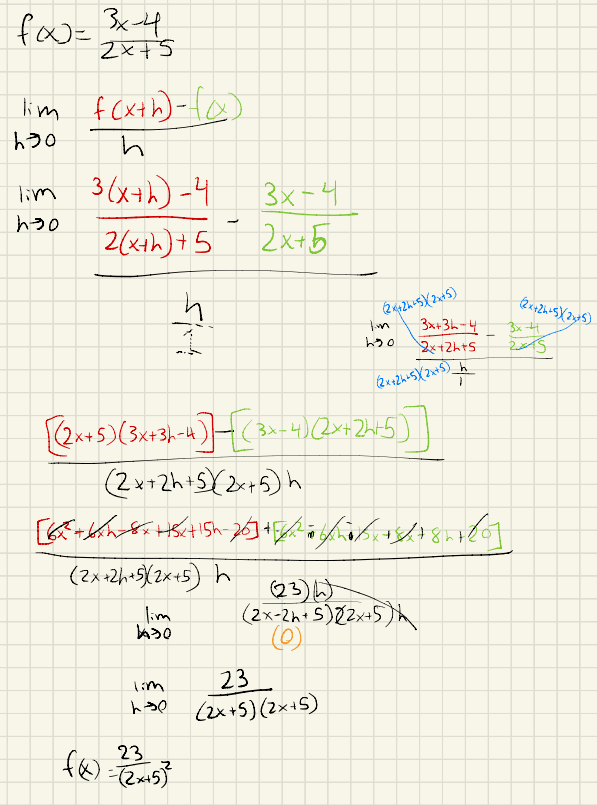 f(x) = \frac{3x-4}{2x+5}
\lim_{h→0} \frac{f(x+h) - f(x)}{h}
\lim_{h→0} \frac{\frac{3(x+h)-4}{2(x+h)+5} - \frac{3x-4}{2x+5}}{\frac{h}{1}}
(2x+2h+5)(2x+5) (2x+2h+5)(2x+5)
\lim_{h→0} \frac{\frac{3x+3h-4}{2x+2h+5} - \frac{3x-4}{2x+5}}{\frac{h}{1}}
(2x+2h+5)(2x+5)
\frac{[(2x+5)(3x+3h-4)] - [(3x-4)(2x+2h+5)]}{(2x+2h+5)(2x+5)h}
\frac{[6x^2+6xh-8x+15x+15h-20] + [6x^2-6xh-15x+8x+8h+20]}{(2x+2h+5)(2x+5) h}
\lim_{h→0} \frac{(23)(h)}{(2x-2h+5)(2x+5)h}
(0)
\lim_{h→0} \frac{23}{(2x+5)(2x+5)}
f(x) = \frac{23}{(2x+5)^2}